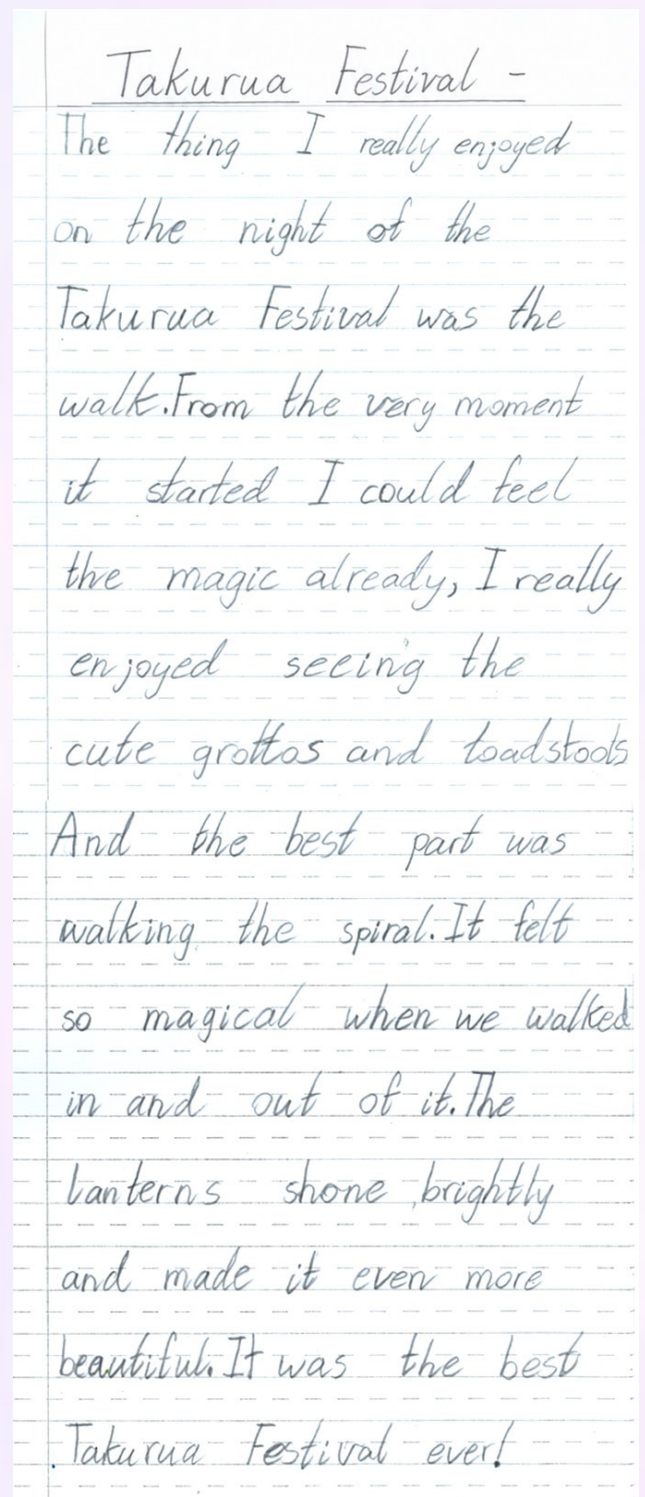 Takurua Festival -
The thing I really enjoyed
on the night of the
Takurua Festival was the
walk.From the very moment
it started I could feel
the magic already, I really
enjoyed seeing the
cute grottos and toadstools
And the best part was
walking the spiral.It felt
so magical when we walked
in and out of it.The
lanterns shone brightly
and made it even more
beautiful.It was the best
Takurua Festival ever!